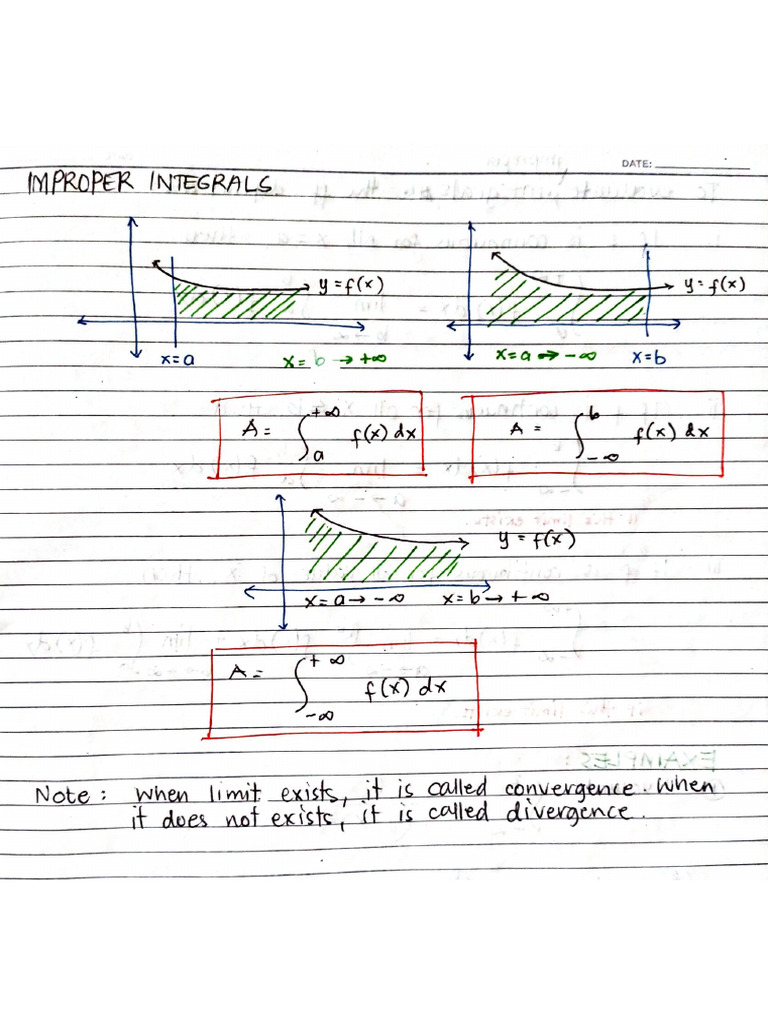 DATE:
IMPROPER INTEGRALS
y = f(x)
x=a
x= b → +∞
y = f(x)
x=a → -∞
x=b
A = ∫ₐ^{+∞} f(x) dx
A = ∫_{-∞}^{b} f(x) dx
y = f(x)
x=a → -∞
x=b → +∞
A = ∫_{-∞}^{+∞} f(x) dx
Note : When limit exists, it is called convergence. When
it does not exists, it is called divergence.